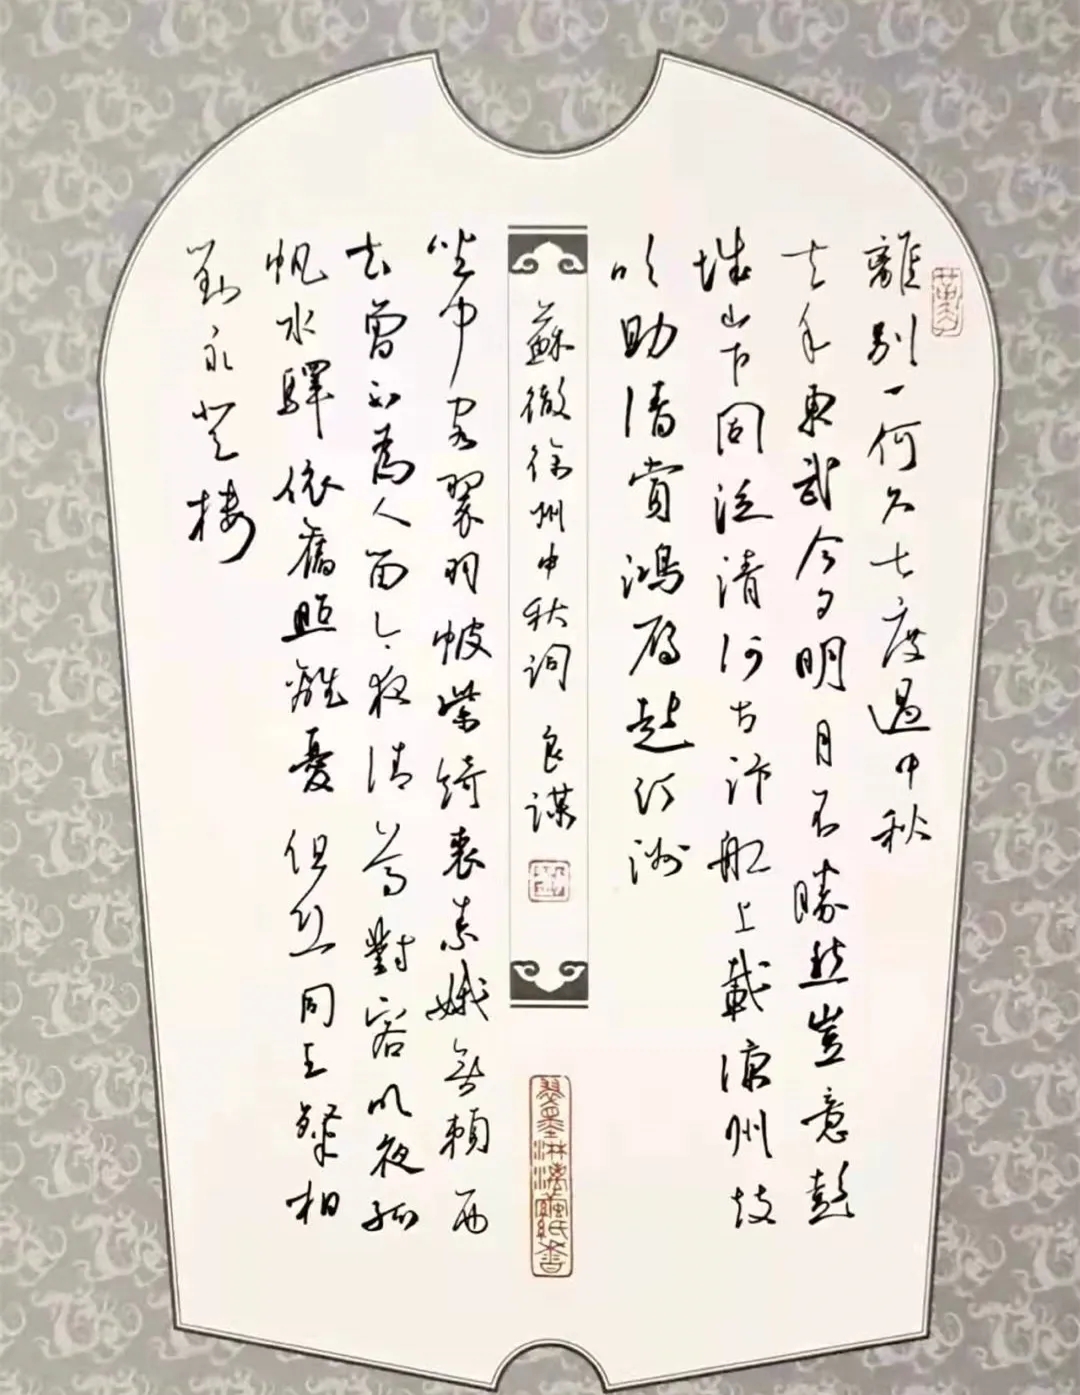 離别一何久七度過中秋
去年東武今夕明月不勝愁豈意彭
城山下同泛清河古汴船上載涼州鼓
吹助清賞鴻雁起汀洲
蘇徹徐州中秋詞 良謀
翠墨淋漓繭紙香
坐中客翠羽帔紫綺裘素娥無賴西
去曾不為人留今夜清尊對客明夜孤
帆水驛依舊照離憂但恐同王粲相
對永登樓